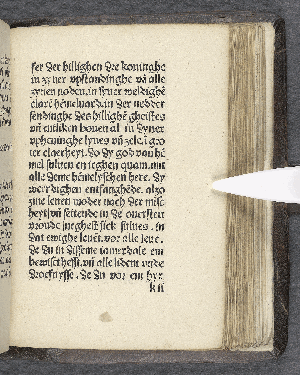 ser der hillighen dre koninghe
in zyner vpstandinghe vñ alle
zynen noden, in syner weldighē
clarē hēmeluard, in der nedder
sendinghe des hillighē gheistes
vñ entliken bouen al in dyner
vpheuinghe lyues vñ zele, ī gro
ter claerheyt. Do dy god van hē
mel suluen en ieghen quam, mit
alle deme hēmelyschen here. Dy
werdighen entfanghēde. alzo
zine leuen moder nach der mīsc
heyt, vñ settende in de ouersten
vroude neghest sick suluen. in
dat ewighe leuēt. vor alle leue.
de du in disseme iamerdale em
bewiset hest. vñ alle lident vnde
droefnysse. de du vor em hyr
k ii